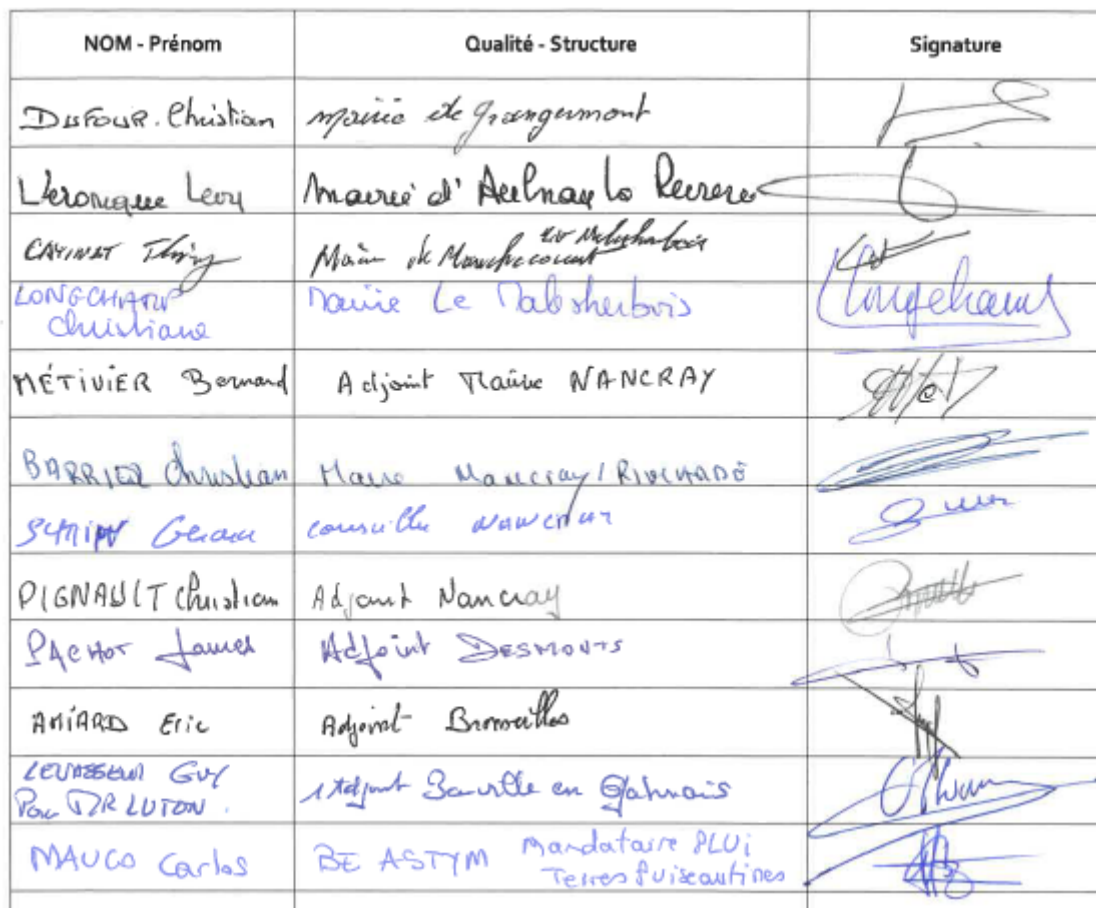 NOM - Prénom Qualité - Structure Signature
DUFOUR. Christian mairie de Grangermont
Véronique Levy Mairie d'Aulnay la Rivière
CATINAT Thierry Maire de Manchecourt Le Malesherbois
LONGCHAMP Christiane Mairie Le Malesherbois Longchamp
MÉTIVIER Bernard Adjoint Maire NANCRAY
BARRIER Christian Maire Nancray / Rimarde
Gérard conseiller NANCRAY
PIGNAULT Christian Adjoint Nancray
PACHOT James Adjoint DESMONTS
AMIARD Eric Adjoint Bromeilles
LEVASSEUR GUY
Pour MR LUTON. 1 Adjoint Barville en Gatinais
MAUCO Carlos BE ASTYM Mandataire PLUi
Terres Puiseautines